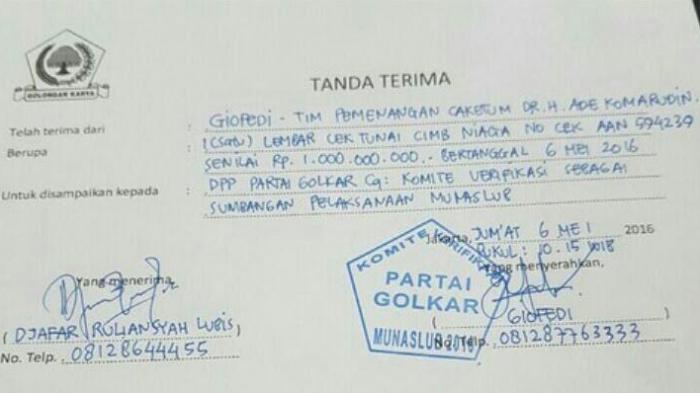 GOLONGAN KARYA
TANDA TERIMA
Telah terima dari : GIOFEDI - TIM PEMENANGAN CAKETUM DR. H. ADE KOMARUDIN.
Berupa : 1 (Satu) LEMBAR CEK TUNAI CIMB NIAGA NO CEK AAN 594239
SENILAI Rp. 1.000.000.000.- BERTANGGAL 6 MEI 2016
Untuk disampaikan kepada : DPP PARTAI GOLKAR Cq: KOMITE VERIFIKASI SEBAGAI
SUMBANGAN PELAKSANAAN MUNASLUB
Jakarta, JUM'AT 6 MEI 2016
PUKUL : 10.15 WIB
Yang menerima, Yang menyerahkan,
KOMITE VERIFIKASI
PARTAI
GOLKAR
MUNASLUB 2016
( DJAFAR RULIANSYAH LUBIS ) ( GIOFEDI )
No. Telp. 08128644455 No. Telp. 081287763333